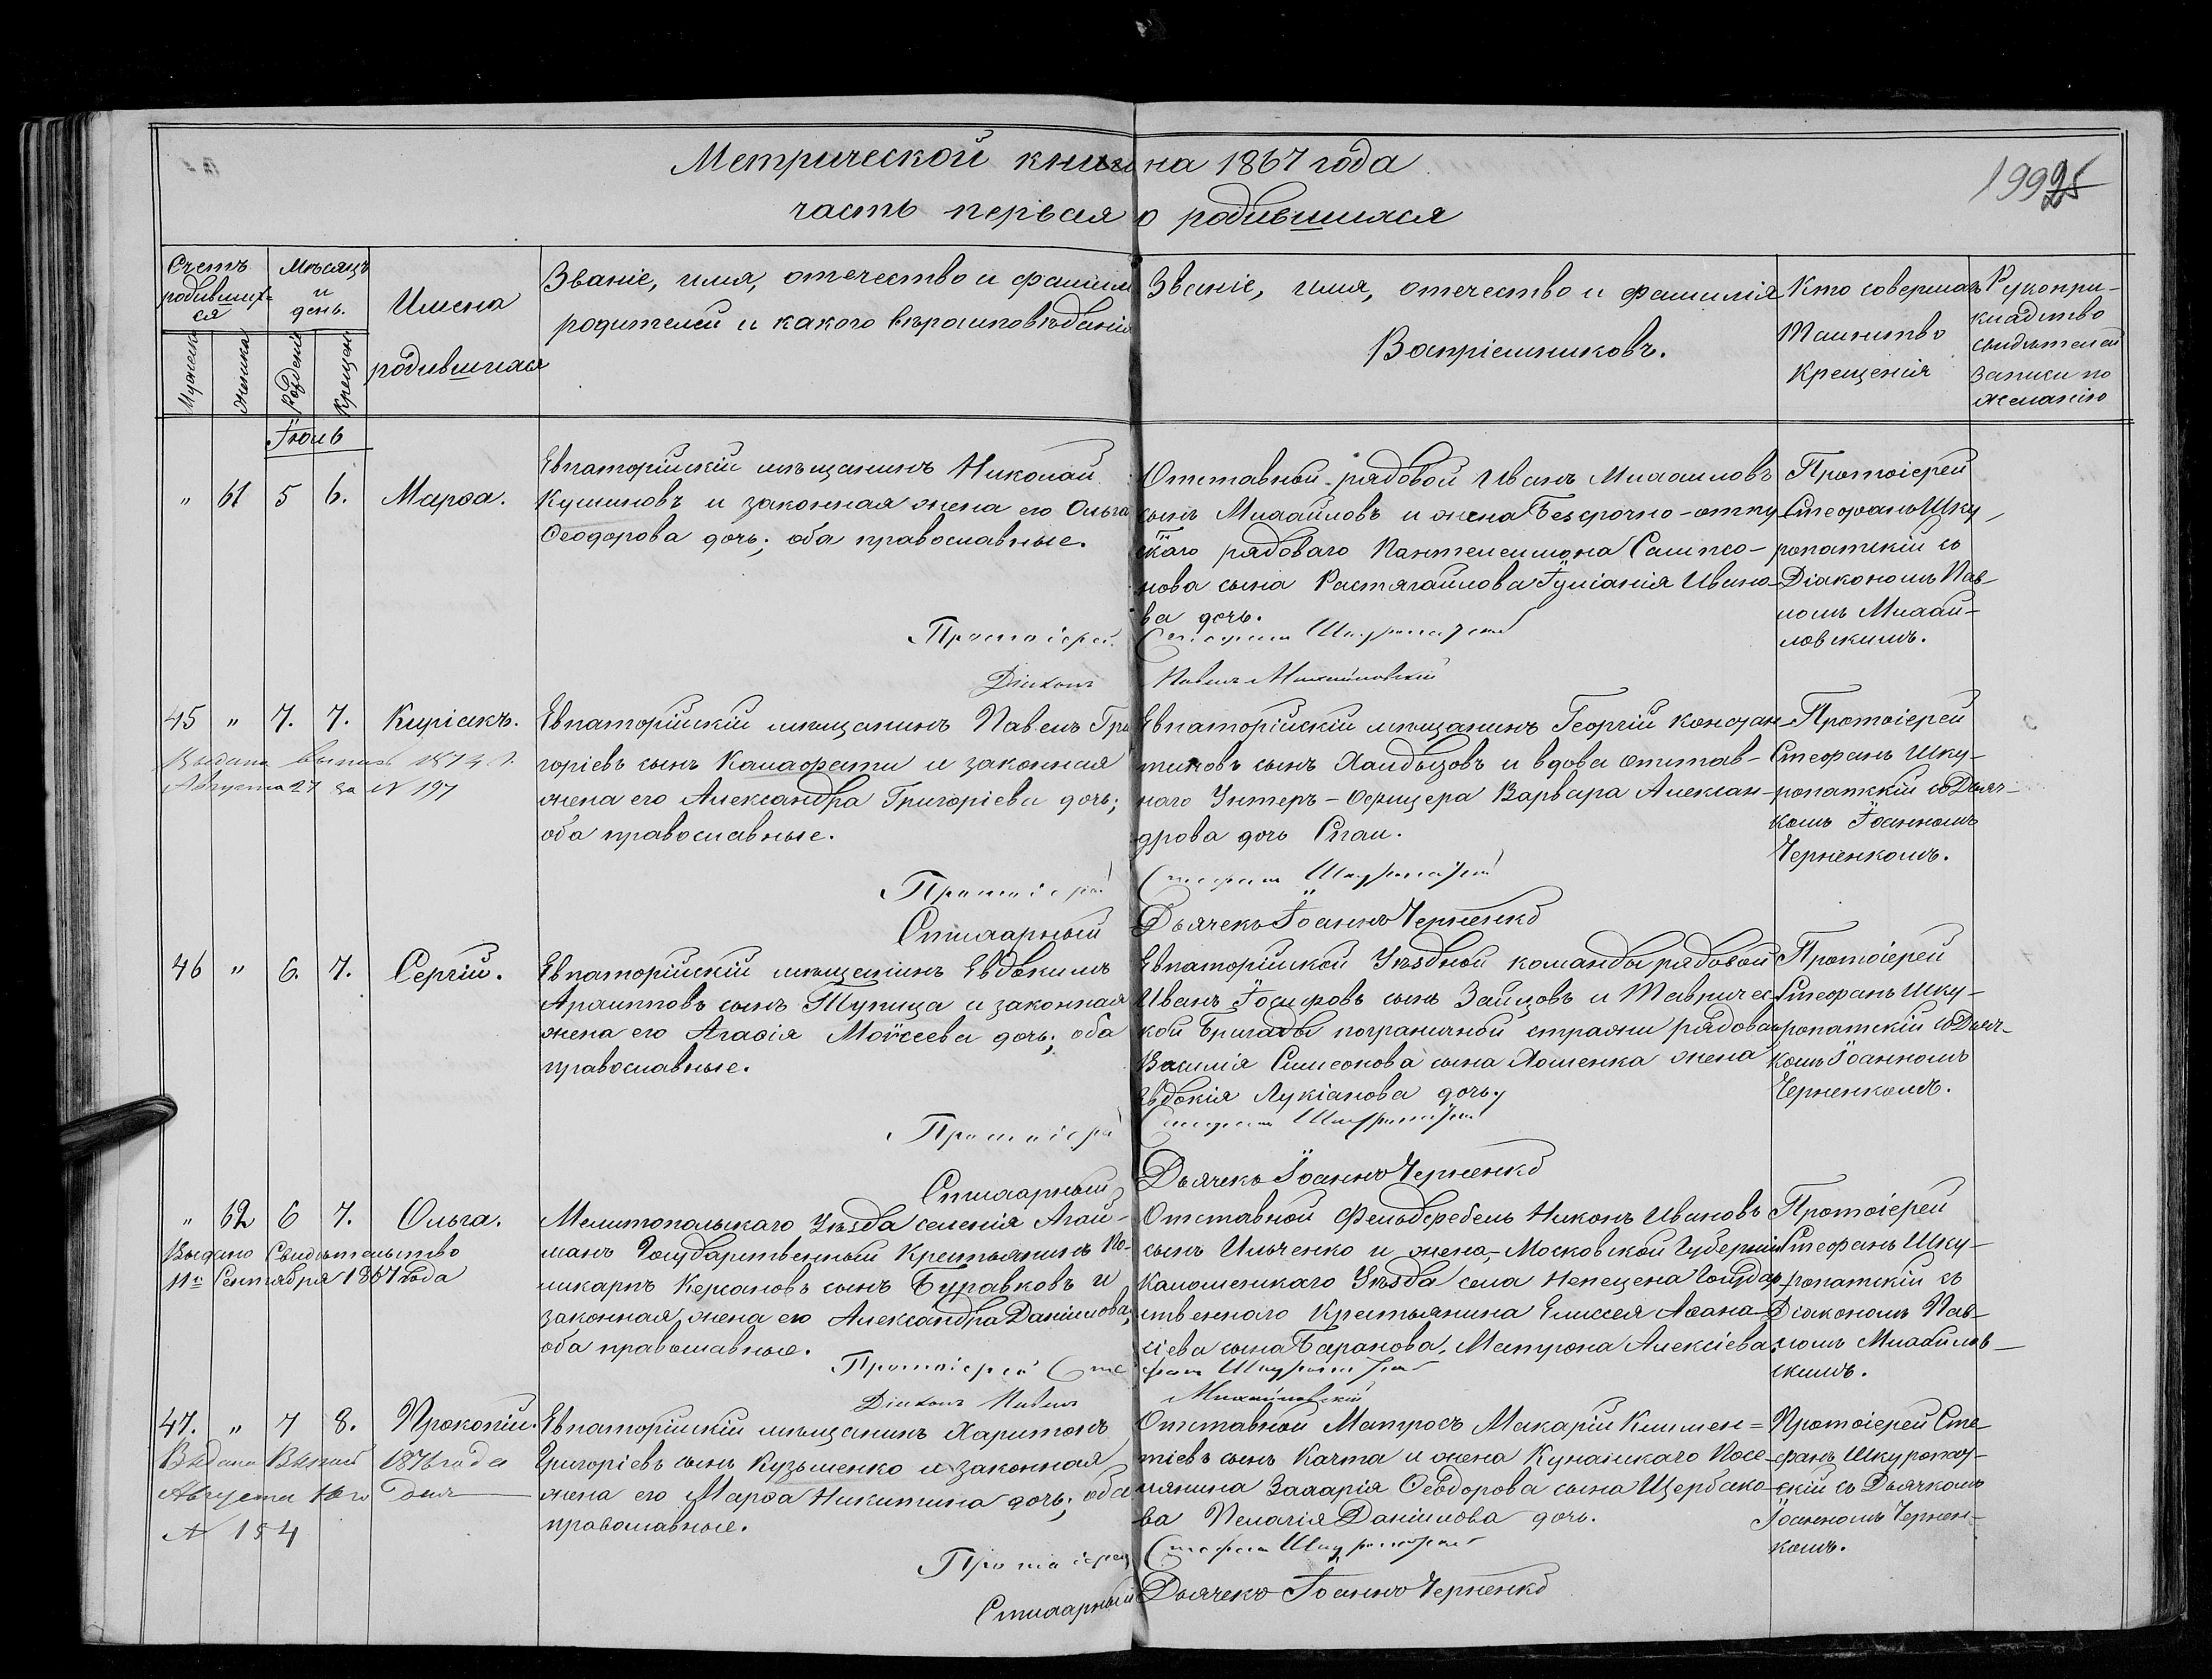 Метрической книги на 1867 года
часть первая о родившихся
199 25
Счетъ родившихся
Мужеска
Женска
Мѣсяцъ и день.
Рожденія
Крещенія
Имена родившихся
Званіе, имя, отечество и фамилія
родителей и какого вѣроисповѣданія
Званіе, имя, отечество и фамилія
Воспріемниковъ.
Кто совершалъ
Таинство
Крещенія
Рукопри-
кладство
свидѣтелей
записи по
желанію
Іюль
" 61 5 6. Марѳа.
Евпаторійскій мѣщанинъ Николай
Кушниовъ и законная жена его Ольга
Ѳеодорова дочь; оба православные.
Отставной рядовой Иванъ Михаиловъ
сынъ Михайловъ и жена Безсрочно-отпу
скнаго рядоваго Пантелеимона Сампсо-
нова сына Растягайлова Іуліанія Ивано-
ва дочь.
Протоіерей
Стефанъ Шку-
ропатскій съ
Діакономъ Пав-
ломъ Михай-
ловскимъ.
Протоіерей Стефанъ Шкуропатскій
Діаконъ Павелъ Михайловскій
45 " 7. 7. Киріакъ.
Выдана выпись 1874 г.
Августа 27 за N 197
Евпаторійскій мѣщанинъ Павелъ Гри
горіевъ сынъ Калафати и законная
жена его Александра Григоріева дочь;
оба православные.
Евпаторійскій мѣщанинъ Георгій Констан-
тиновъ сынъ Хаидызовъ и вдова отстав-
наго Унтеръ-Офицера Варвара Алексан-
дрова дочь Спаи.
Протоіерей
Стефанъ Шку-
ропатскій съ Дьяч-
комъ Іоанномъ
Черненкомъ.
Протоіерей Стефанъ Шкуропатскій
Стихарный Дьячекъ Іоаннъ Черненко
46 " 6. 7. Сергій.
Евпаторійскій мѣщанинъ Евдокимъ
Архипповъ сынъ Тупица и законная
жена его Агаѳія Моѵсеева дочь; оба
православные.
Евпаторійской Уѣздной команды рядовой
Иванъ Іосифовъ сынъ Зайцовъ и Таврическ
кой Бригады пограничной стражи рядоваго
Василія Симеонова сына Хоменка жена
Евдокія Лукіанова дочь.
Протоіерей
Стефанъ Шку-
ропатскій съ Дьяч-
комъ Іоанномъ
Черненкомъ.
Протоіерей Стефанъ Шкуропатскій
Стихарный Дьячекъ Іоаннъ Черненко
" 62 6 7. Ольга.
Выдано Свидѣтельство
11го Сентября 1867 года
Мелитопольскаго Уѣзда селенія Агай-
манъ Государственный Крестьянинъ По-
ликарпъ Керсановъ сынъ Буравковъ и
законная жена его Александра Даніилова,
оба православные.
Отставной Фельдфебель Никонъ Ивановъ
сынъ Ильченко и жена, Московской Губерніи
Коломенскаго Уѣзда села Непецена Государ-
ственнаго Крестьянина Елисея Аѳана-
сіева сына Баранова, Матрона Алексіева.
Протоіерей
Стефанъ Шку-
ропатскій съ
Діакономъ Пав-
ломъ Михайлов-
скимъ.
Протоіерей Стефанъ Шкуропатскій
Діаконъ Павелъ Михайловскій
47. " 7 8. Прокопій.
Выдана Выпись 1876 года
Августа 16го дня
N 154
Евпаторійскій мѣщанинъ Харитонъ
Григоріевъ сынъ Кузьменко и законная
жена его Марѳа Никитина дочь; оба
православные.
Отставной Матросъ Макарій Климен=
тіевъ сынъ Качта и жена Кунанскаго Посе-
лянина Захарія Ѳеодорова сына Щербако-
ва Пелагія Даніилова дочь.
Протоіерей Сте-
фанъ Шкуропат-
скій съ Дьячкомъ
Іоанномъ Чернен-
комъ.
Протоіерей Стефанъ Шкуропатскій
Стихарный Дьячекъ Іоаннъ Черненко